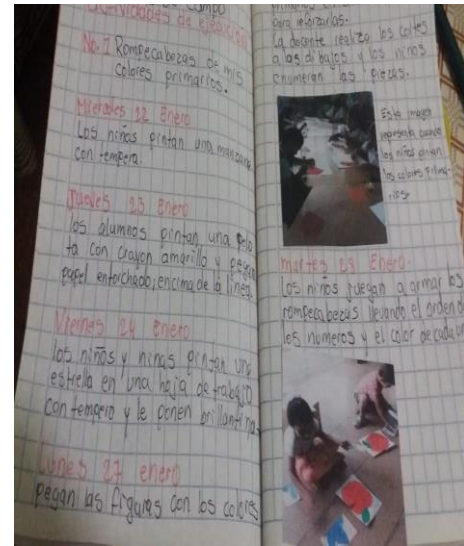 campo
actividades de ejecución
No. 1 Rompecabezas de mis
colores primarios.
Miercoles 22 Enero
Los niños pintan una manzana
con tempera.
Jueves 23 Enero
los alumnos pintan una pelo
ta con crayon amarillo y pegan
papel entorchado, encima de la linea.
Viernes 24 Enero
los niños y ninas pintan una
estrella en una hoja de trabajo
con tempera y le ponen brillantina.
Lunes 27 enero
pegan las figuras con los colores
primarios
para reforzarlas.
La docente realiza los cortes
a las dibajos y los niños
enumeran las piezas.
Esta imagen
representa cuando
los niños pintan
los colores Prima-
rios.
martes 28 Enero.
Los niños juegan a armar los
rompecabezas llevando el orden de
les numeros y el color de cada